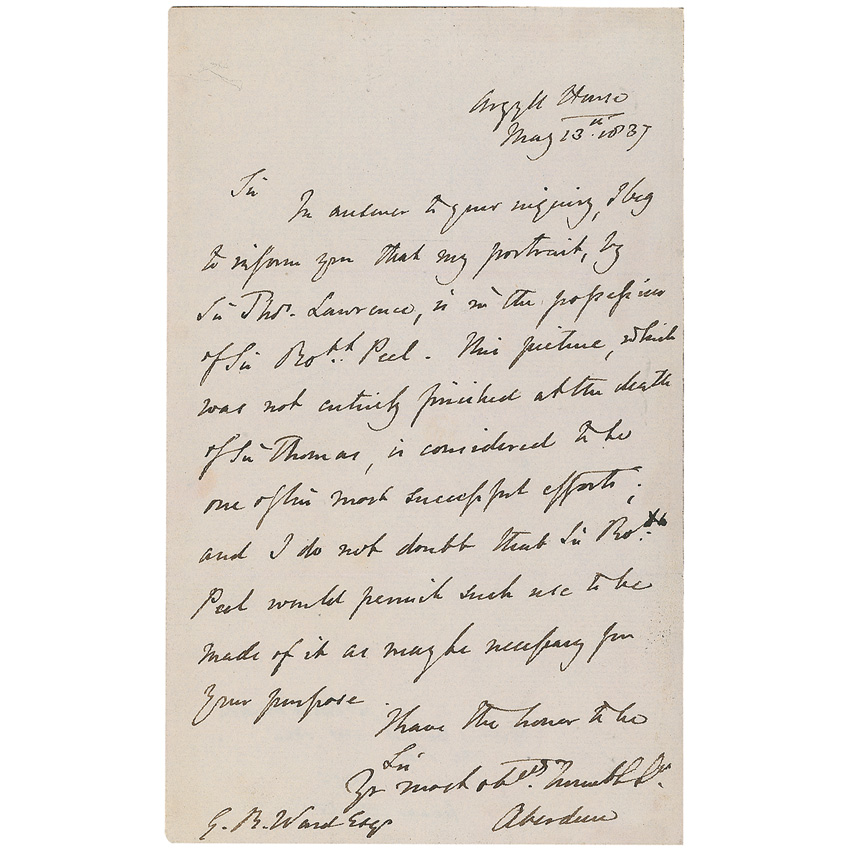 Argyll House
May 13th. 1837
Sir
In answer to your inquiry, I beg
to inform you that my portrait, by
Sir Thos. Lawrence, is in the possession
of Sir Robt. Peel. This picture, which
was not entirely finished at the death
of Sir Thomas, is considered to be
one of his most successful efforts;
and I do not doubt that Sir Robt.
Peel would permit such use to be
made of it as may be necessary for
your purpose.
I have the honor to be
Sir
Yr most obedt. humble St.
Aberdeen
G. R. Ward Esqr